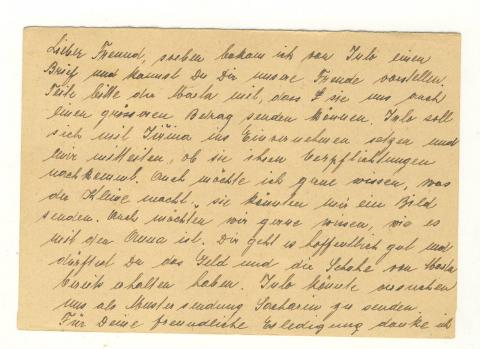 Lieber Freund, soeben bekam ich von Julo einen
Brief und kannst Du Dir unsere Freude vorstellen.
Teile bitte der Marta mit, dass sie uns auch
einen grösseren Betrag senden können. Julo soll
sich mit Firma ins Einvernehmen setzen und
mir mitteilen, ob sie ihren Verpflichtungen
nachkommt. Auch möchte ich gerne wissen, was
die Kleine macht, sie könnten mir ein Bild
senden. Auch möchten wir gerne wissen, wie es
mit der Anna ist. Dir geht es hoffentlich gut und
dürftest Du das Geld und die Schuhe von Marta
bereits erhalten haben. Julo könnte versuchen
uns als Mustersendung Sacharin zu senden.
Für Deine freundliche Erledigung danke ich